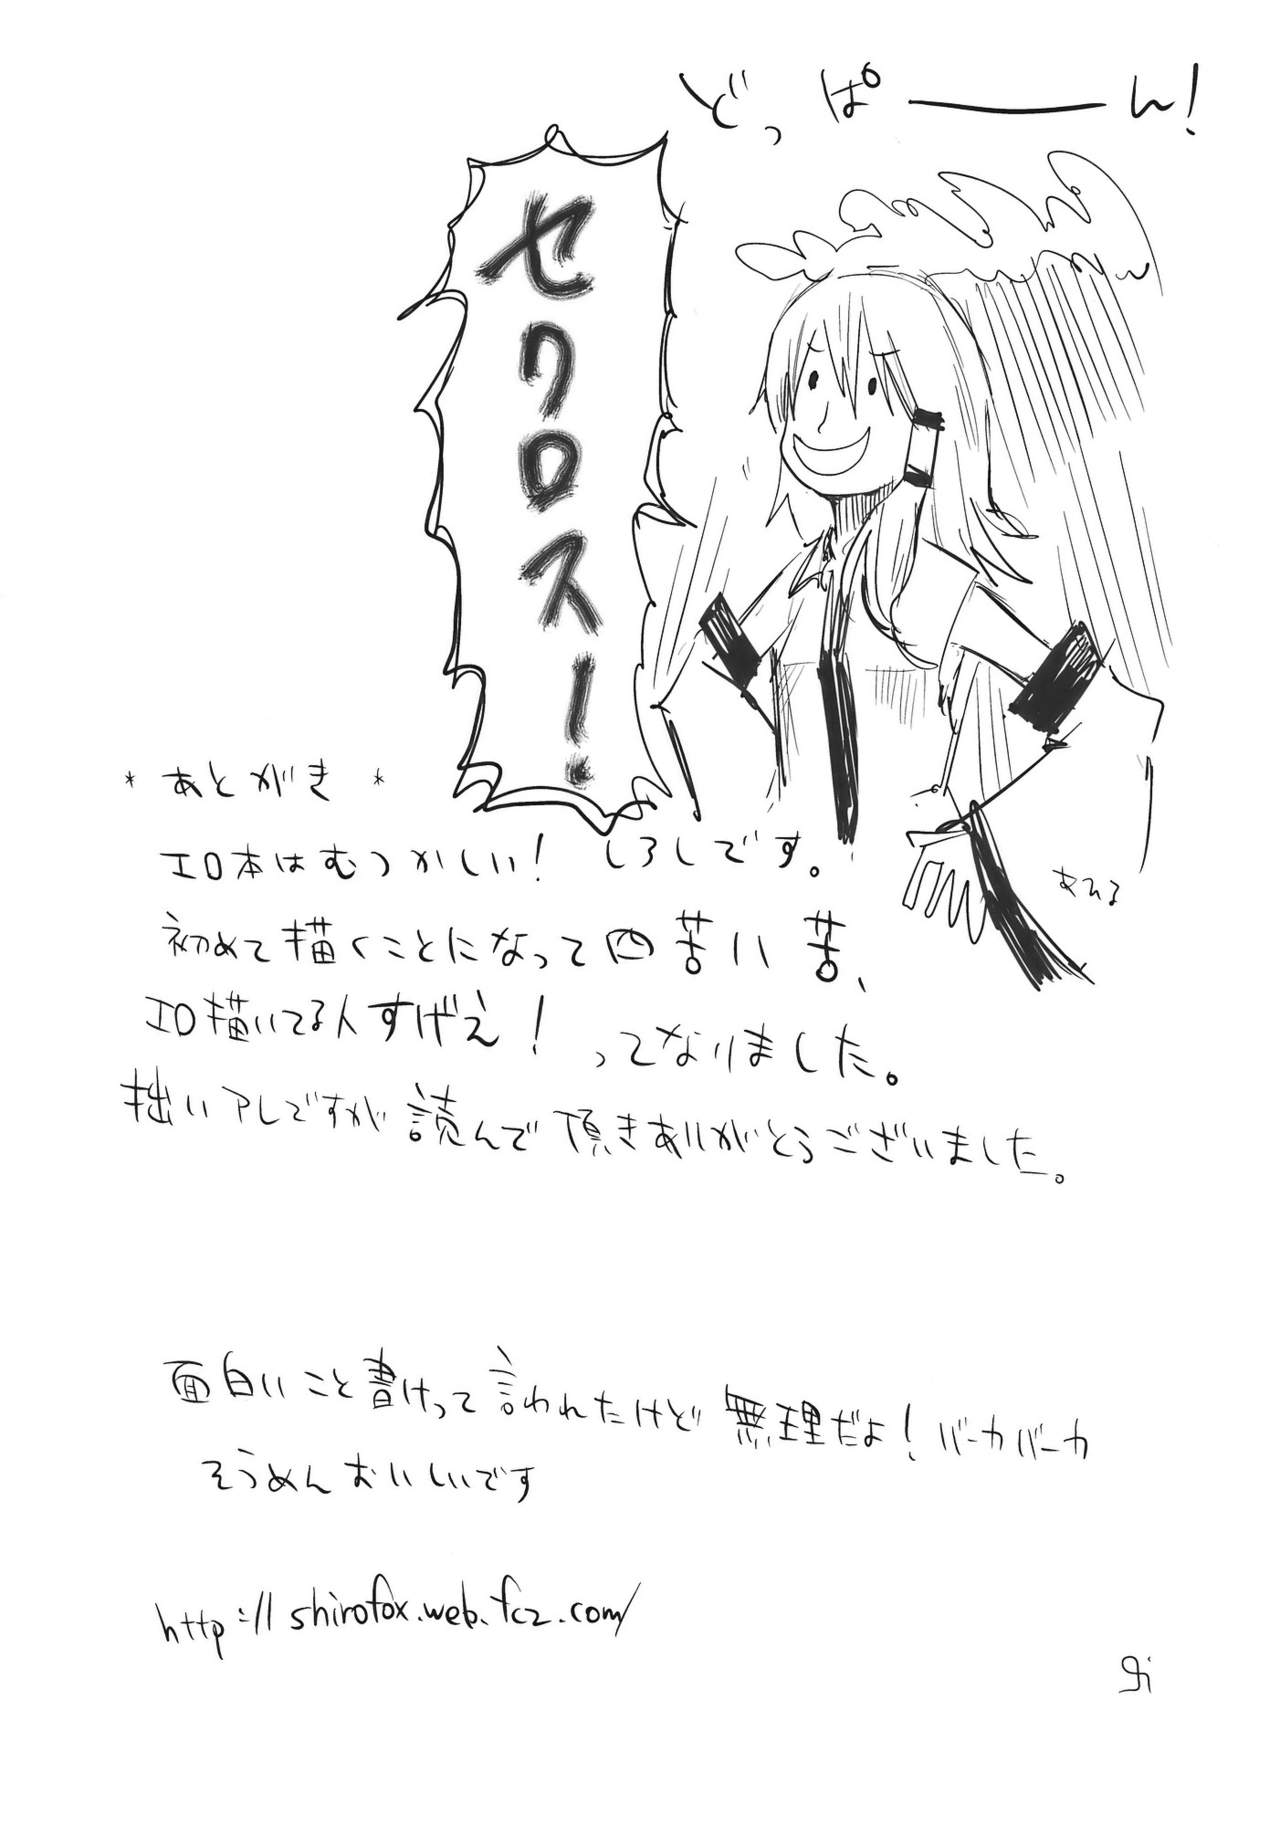 どっぱーーーん!
セクロスー!
*あとがき*
エロ本はむつかしい! しろしです。
初めて描くことになって四苦八苦、
エロ描いてる人すげえ! ってなりました。
拙いアレですが読んで頂きありがとうございました。
面白いこと書けって言われたけど無理だよ! バーカバーカ
そうめんおいしいです
http://shirofox.web.fc2.com/